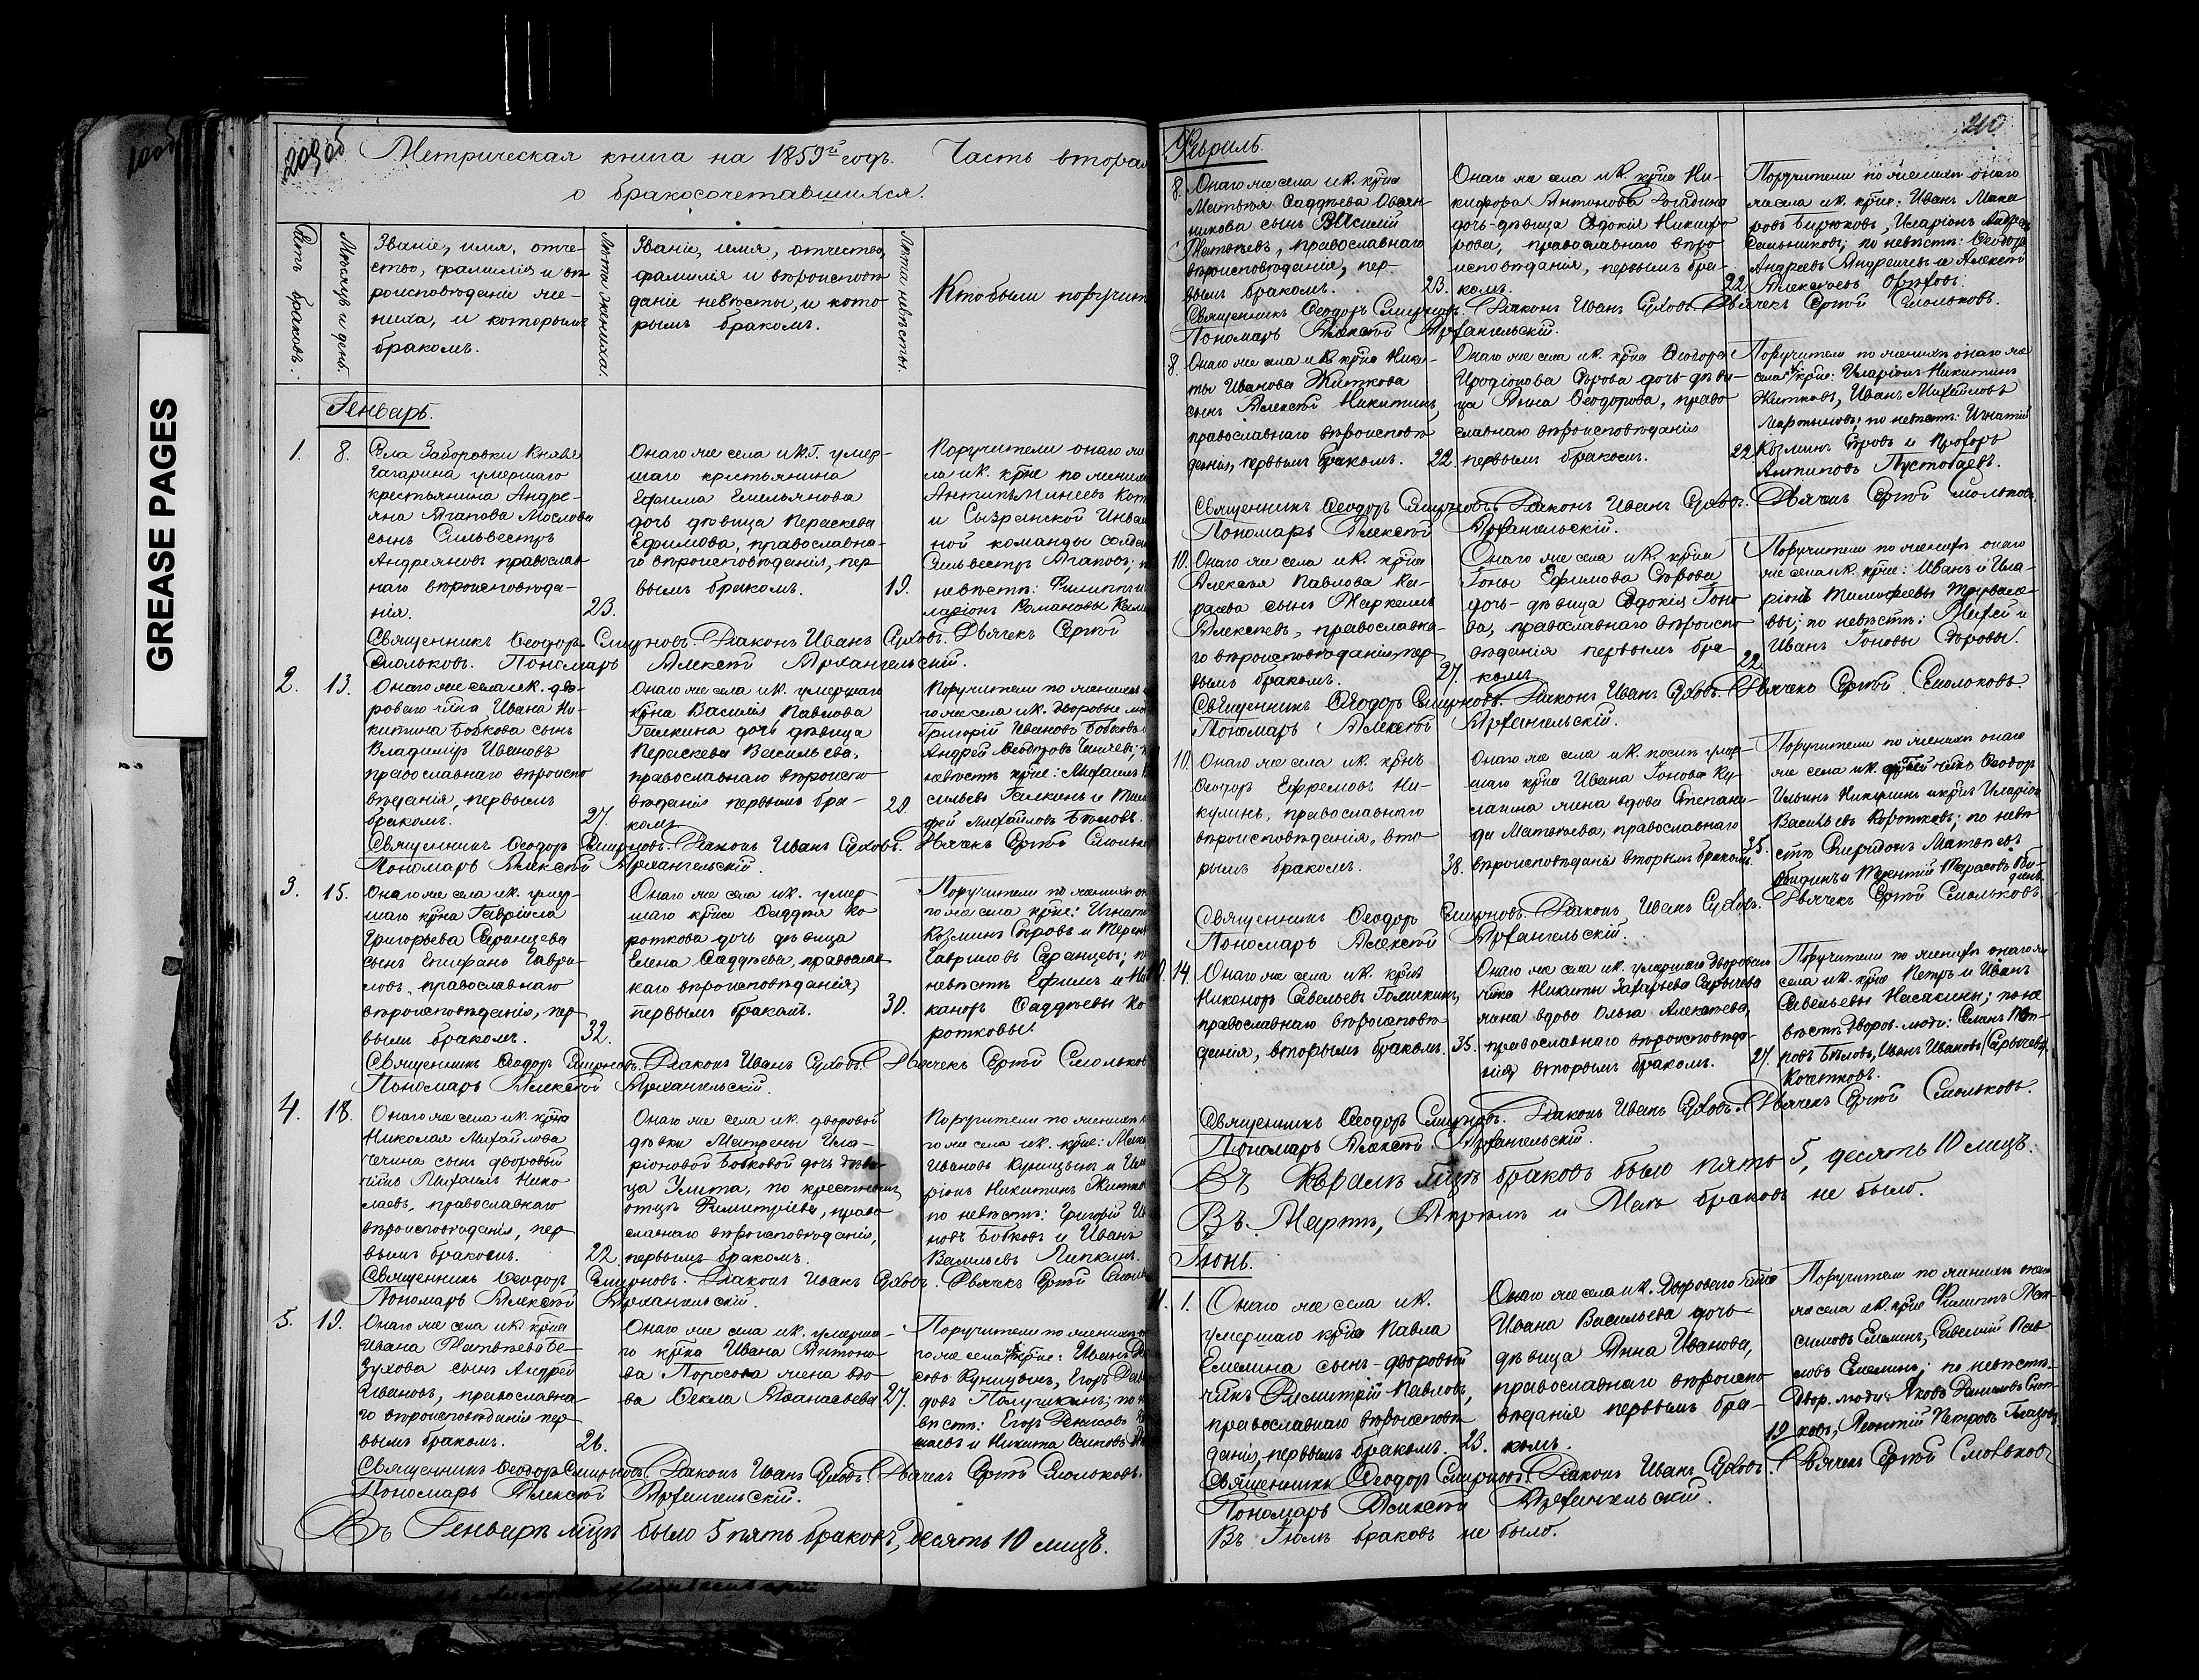 209 об
Метрическая книга на 1859й годъ. Часть вторая
о бракосочетавшихся.
Счетъ браковъ.
Мѣсяцъ и день
Званіе, имя, отче-
ство, фамилія и вѣ-
роисповѣданіе же-
ниха, и которымъ
бракомъ.
Лѣта жениха.
Званіе, имя, отчество,
фамилія и вѣроисповѣ-
даніе невѣсты, и кото-
рымъ бракомъ.
Лѣта невѣсты.
Кто были поручит
GREASE PAGES
Генварь.
1. 8.
Села Заборовки Князя
Гагарина умершаго
крестьянина Андре-
яна Агапова Маслова
сынъ Сильвестръ
Андреяновъ православ
наго вѣроисповѣда-
нія. 23.
Онаго же села и К.Г. умер-
шаго крестьянина
Ефима Емельянова
дочь дѣвица Параскева
Ефимова, православна-
го вѣроисповѣданія, пер-
вымъ бракомъ. 19.
Поручители онаго же
ла и К. крне по жених
Антипъ Минеевъ
и Сызранской Инва
ной команды солда
Сильвестръ Агаповъ;
невѣстѣ: Филиппъ и
ларіонъ Романовы
Священникъ Ѳеодоръ Смирновъ. Діаконъ Иванъ Суховъ. Дьячекъ Сергѣй
Смольковъ. Пономарь Алексѣй Архангельскій.
2. 13.
Онаго же села и К. дво-
роваго чка Ивана Ни-
китина Бобкова сынъ
Владиміръ Ивановъ
православнаго вѣроиспо
вѣданія, первымъ
бракомъ. 27.
Онаго же села и К. умершаго
крна Василія Павлова
Галкина дочь дѣвица
Параскева Васильева,
православнаго вѣроиспо-
вѣданія первымъ бра-
комъ 20.
Поручители по женихѣ
го же села и К. дворовые лю
Григорій Ивановъ Бобковъ
Андрей Ѳеодоровъ
невѣстѣ крне: Михаилъ
сильевъ Галкинъ и Тимо
фей Михайловъ Бѣловъ.
Священникъ Ѳеодоръ Смирновъ. Діаконъ Иванъ Суховъ. Дьячекъ Сергѣй Смольк
Пономарь Алексѣй Архангельскій.
3. 15.
Онаго же села и К. умер-
шаго крна Гавріила
Григорьева Саранцева
сынъ Епифанъ Гаври-
ловъ православнаго
вѣроисповѣданія, пер
вымъ бракомъ. 32.
Онаго же села и К. умер
шаго крна Ѳаддея Ко
роткова дочь дѣвица
Елена Ѳаддѣева, православ
наго вѣроисповѣданія,
первымъ бракомъ. 30.
Поручители по женихѣ он
го же села крне: Игнат
Козминъ Сыровъ и Терен
Гавриловъ Саранцевъ; п
невѣстѣ Ефимъ и Ни
каноръ Ѳаддѣевы Ко
ротковы.
Священникъ Ѳеодоръ Смирновъ. Діаконъ Иванъ Суховъ. Дьячекъ Сергѣй Смольков
Пономарь Алексѣй Архангельскій.
4. 18.
Онаго же села и К. крна
Николая Михайлова
сынъ дворовый
чкъ Михаилъ Нико
лаевъ, православнаго
вѣроисповѣданія, пер
вымъ бракомъ. 22.
Онаго же села и К. дворовой
дѣвки Матрены Ила-
ріоновой Бобковой дочь дѣви-
ца Улита, по крестному
отцу Димитріева, право
славнаго вѣроисповѣданія,
первымъ бракомъ.
Поручители по женихѣ
го же села и К. крне:
Ивановъ Куницынъ и Ила
ріонъ Никитинъ Житко
по невѣстѣ: Григорій Ива
новъ Бобковъ и Иванъ
Васильевъ Липкинъ.
Священникъ Ѳеодоръ Смирновъ. Діаконъ Иванъ Суховъ. Дьячекъ Сергѣй Смоль
Пономарь Алексѣй Архангельскій.
5. 19.
Онаго же села и К. крна
Ивана Матвѣева Бе-
зухова сынъ Андрей
Ивановъ, православна-
го вѣроисповѣданія пер
вымъ бракомъ. 26.
Онаго же села и К. умерша-
го крна Ивана Антоно-
ва Поросова жена вдо-
ва Ѳекла Аѳанасьева 27.
Поручители по женихѣ
го же села крне: Иванъ
совъ Куницынъ, Егоръ
довъ Получикинъ; по н
вѣстѣ: Егоръ Денисовъ
и Никита Осиповъ
Священникъ Ѳеодоръ Смирновъ. Діаконъ Иванъ Суховъ. Дьячекъ Сергѣй Смольковъ.
Пономарь Алексѣй Архангельскій.
Въ Генварѣ мцѣ было 5 пять браковъ, десять 10 лицъ.
210
Февраль.
8.
Онаго же села и К. крна
Матвѣя Ѳаддѣева Овсян-
никова сынъ Василій
Матвѣевъ, православнаго
вѣроисповѣданія, пер-
вымъ бракомъ. 23.
Онаго же села и К. крна Ни-
кифора Антонова
дочь-дѣвица Евдокія Никифо
рова, православнаго вѣро
исповѣданія, первымъ бра-
комъ. 22.
Поручители по женихѣ онаго
же села и К. крне: Иванъ Мака
ровъ Бирюковъ, Иларіонъ Андрее
Сальниковъ; по невѣстѣ: Ѳеодоръ
Андреевъ и Алексѣй
Алексѣевъ Орѣховъ.
Священникъ Ѳеодоръ Смирновъ. Діаконъ Иванъ Суховъ. Дьячекъ Сергѣй Смольковъ.
Пономарь Алексѣй Архангельскій.
8.
Онаго же села и К. крна Ники-
ты Иванова Житкова
сынъ Алексѣй Никитинъ,
православнаго вѣроисповѣ
данія, первымъ бракомъ. 22.
Онаго же села и К. крна Ѳеодора
Иродіонова Сырова дочь-дѣви-
ца Анна Ѳеодорова, право
славнаго вѣроисповѣданія
первымъ бракомъ. 22
Поручители по женихѣ онаго же
села крне: Иларіонъ Никитинъ
Житковъ, Иванъ Михайловъ
Мартыновъ; по невѣстѣ: Игнатій
Козминъ Сыровъ и Прохоръ
Антиповъ Пустобаевъ.
Священникъ Ѳеодоръ Смирновъ. Діаконъ Иванъ Суховъ. Дьячекъ Сергѣй Смольковъ.
Пономарь Алексѣй Архангельскій.
10.
Онаго же села и К. крна
Алексѣя Павлова Ка-
раева сынъ Маркеллъ
Алексѣевъ, православна-
го вѣроисповѣданія, пер
вымъ бракомъ. 27.
Онаго же села и К. крна
Іоны Ефимова Сырова
дочь-дѣвица Евдокія Іоно
ва, православнаго вѣроиспо
вѣданія первымъ бра-
комъ 22
Поручители по женихѣ онаго
же села и К. крне: Иванъ и Ила-
ріонъ Тимофеевы
вы; по невѣстѣ: Михей и
Иванъ Іоновы Сыровы.
Священникъ Ѳеодоръ Смирновъ. Діаконъ Иванъ Суховъ. Дьячекъ Сергѣй Смольковъ.
Пономарь Алексѣй Архангельскій.
10.
Онаго же села и К. крнъ
Ѳеодоръ Ефремовъ Ни-
кулинъ, православнаго
вѣроисповѣданія, вто-
рымъ бракомъ. 38.
Онаго же села и К. послѣ умер-
шаго крна Ивана Іонова Ку-
жена вдова Степани-
да Матвѣева, православнаго
вѣроисповѣданія вторымъ бракомъ. 35.
Поручители по женихѣ онаго
же села и К. Ѳеодоръ
Ильинъ Никулинъ и крнъ Иларіонъ
Васильевъ Коротковъ; по невѣ
стѣ Спиридонъ Матвѣевъ
и Терентій Тарасовъ
Священникъ Ѳеодоръ Смирновъ. Діаконъ Иванъ Суховъ. Дьячекъ Сергѣй Смольковъ
Пономарь Алексѣй Архангельскій.
10. 14.
Онаго же села и К. крнъ
Никаноръ Савельевъ Голикинъ,
православнаго вѣроисповѣ-
данія, вторымъ бракомъ. 35.
Онаго же села и К. умершаго двороваго
чка Никиты Захарьева Сарычева
жена вдова Ольга Алексѣева,
православнаго вѣроисповѣда-
нія, вторымъ бракомъ. 27.
Поручители по женихѣ онаго же
села и К. крне Петръ и Иванъ
Савельевы Насакины; по не
вѣстѣ дворов. люди: Пет-
ровъ Бѣловъ, Иванъ Ивановъ (Сарычевъ)
Кочетковъ.
Священникъ Ѳеодоръ Смирновъ. Діаконъ Иванъ Суховъ. Дьячекъ Сергѣй Смольковъ.
Пономарь Алексѣй Архангельскій.
Въ Февралѣ мцѣ браковъ было пять 5, десять 10 лицъ.
Въ Мартѣ, Апрѣлѣ и Маѣ браковъ не было.
Іюнь.
11. 1.
Онаго же села и К.
умершаго крна Павла
Емелина сынъ-дворовый
чкъ Димитрій Павловъ,
православнаго вѣроисповѣ
данія, первымъ бракомъ. 23.
Онаго же села и К. двороваго чка
Ивана Васильева дочь
дѣвица Анна Иванова,
православнаго вѣроиспо-
вѣданія первымъ бра-
комъ. 19
Поручители по женихѣ онаго
же села и К. крне Филиппъ Мак-
симовъ Емелинъ, Савелій Пав
ловъ Емелинъ; по невѣстѣ
двор. люди: Яковъ Даниловъ
ковъ, Леонтій Петровъ Глазов
Священникъ Ѳеодоръ Смирновъ. Діаконъ Иванъ Суховъ. Дьячекъ Сергѣй Смольковъ
Пономарь Алексѣй Архангельскій.
Въ Іюлѣ браковъ не было.